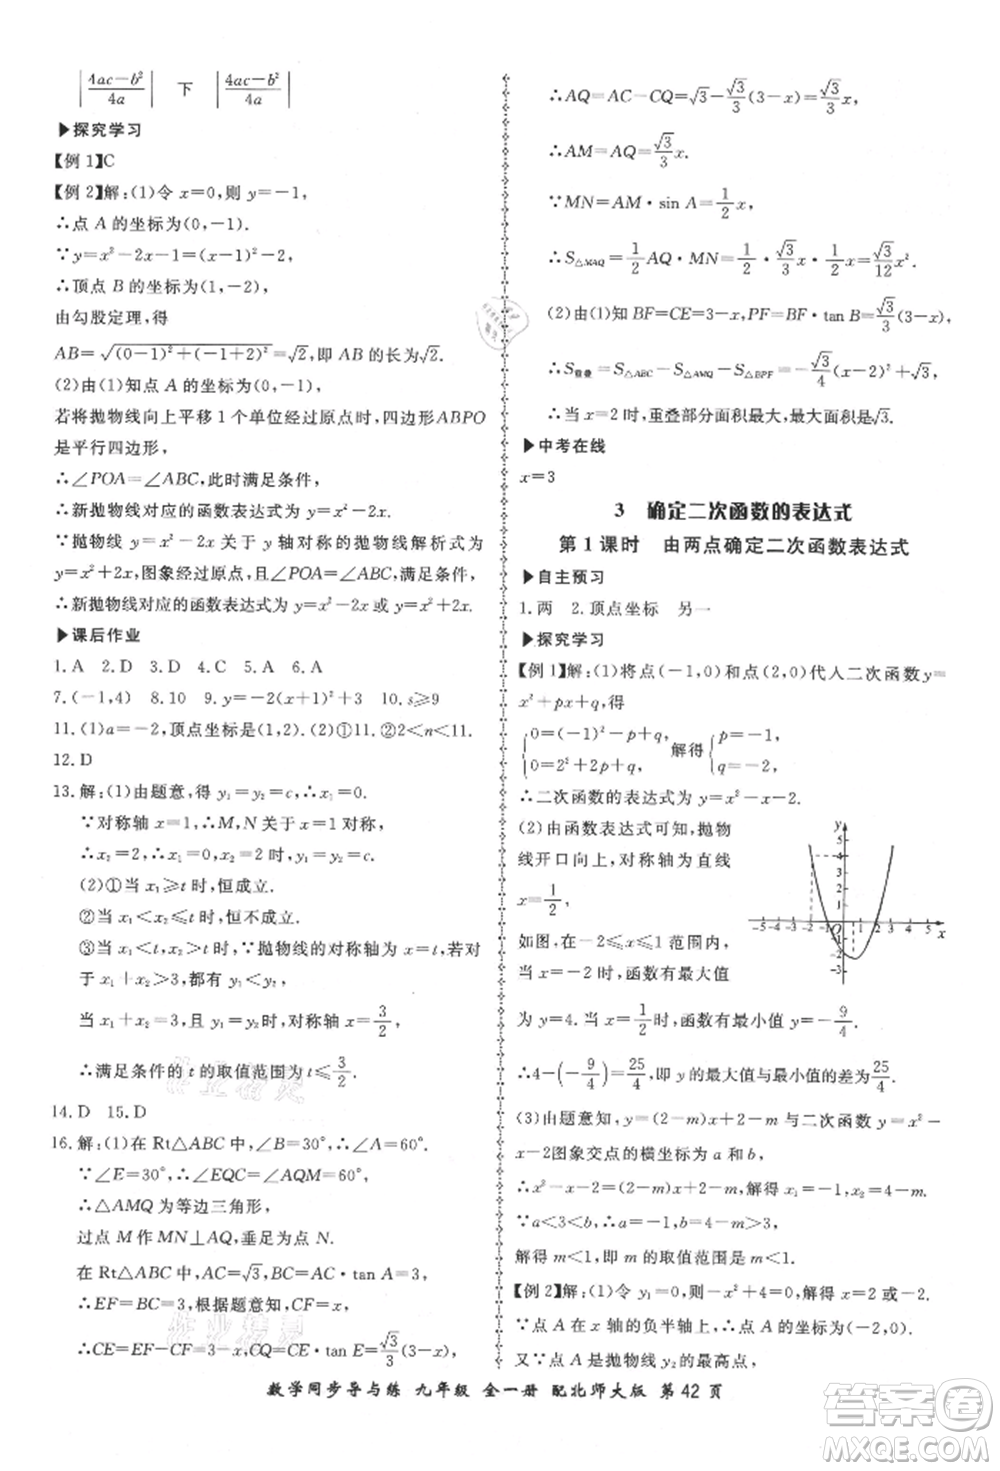 |4ac-b²/4a| 下 |4ac-b²/4a|
▶探究学习
【例1】C
【例2】解:(1)令 x=0,则 y=-1,
∴点 A 的坐标为(0,-1).
∵y=x²-2x-1=(x-1)²-2,
∴顶点 B 的坐标为(1,-2),
由勾股定理,得
AB=√((0-1)²+(-1+2)²)=√2,即 AB 的长为√2.
(2)由(1)知点 A 的坐标为(0,-1),
若将抛物线向上平移 1 个单位经过原点时,四边形ABPO
是平行四边形,
∴∠POA=∠ABC,此时满足条件,
∴新抛物线对应的函数表达式为 y=x²-2x.
∵抛物线 y=x²-2x 关于 y 轴对称的抛物线解析式为
y=x²+2x,图象经过原点,且∠POA=∠ABC,
∴新抛物线对应的函数表达式为 y=x²-2x 或 y=x²+2x.
▶课后作业
1.A 2.D 3.D 4.C 5.A 6.A
7.(-1,4) 8.10 9.y=-2(x+1)²+3 10.s≥9
11.(1)a=-2,顶点坐标是(1,2).(2)①11.②2<n<11.
12.D
13.解:(1)由题意,得 y₁=y₂=c,∴x₁=0.
∵对称轴 x=1,∴M,N 关于 x=1 对称,
∴x₂=2,∴x₁=0,x₂=2 时,y₁=y₂=c.
(2)①当 x₁≥t 时,恒成立.
②当 x₁<x₂≤t 时,恒不成立.
③当 x₁<t,x₂>t 时,∵抛物线的对称轴为 x=t,若对于
x₁+x₂>3,都有 y₁<y₂,
当 x₁+x₂=3,且 y₁=y₂ 时,对称轴 x=3/2,
∴满足条件的 t 的取值范围为 t≤3/2.
14.D 15.D
16.解:(1)在 Rt△ABC 中,∠B=30°,∴∠A=60°.
∵∠E=30°,∴∠EQC=∠AQM=60°,
∴△AMQ 为等边三角形,
过点 M 作 MN⊥AQ,垂足为点 N.
在 Rt△ABC 中,∵AC=√3,∴BC=AC·tan A=3,
∴EF=BC=3,根据题意知,CF=x,
∴CE=EF-CF=3-x,∴CQ=CE·tan E=√3/3(3-x),
∴AQ=AC-CQ=√3-√3/3(3-x)=√3/3x,
∴AM=AQ=√3/3x,
∵MN=AM·sin A=1/2x,
∴S△MAQ=1/2AQ·MN=1/2·√3/3x·1/2x=√3/12x².
(2)由(1)知 BF=CE=3-x,PF=BF·tan B=√3/3(3-x),
∴S重叠=S△ABC-S△AMQ-S△BPF=-√3/4(x-2)²+√3,
∴当 x=2 时,重叠部分面积最大,最大面积是√3.
▶中考在线
x=3
3 确定二次函数的表达式
第 1 课时 由两点确定二次函数表达式
▶自主预习
1.两 2.顶点坐标 另一
▶探究学习
【例 1】解:(1)将点(-1,0)和点(2,0)代人二次函数 y=
x²+px+q,得
{0=(-1)²-p+q, 0=2²+2p+q, 解得{p=-1, q=-2,
∴二次函数的表达式为 y=x²-x-2.
(2)由函数表达式可知,抛物
线开口向上,对称轴为直线
x=1/2,
如图,在-2≤x≤1 范围内,
当 x=-2 时,函数有最大值
y 5 4 3 2 1 -5-4-3-2-1 O 1 2 3 4 5 x -1 -2 -3
为 y=4.当 x=1/2时,函数有最小值 y=-9/4.
∴4-(-9/4)=25/4,即 y 的最大值与最小值的差为25/4.
(3)由题意知,y=(2-m)x+2-m 与二次函数 y=x²-x
-2图象交点的横坐标为 a 和 b,
∴x²-x-2=(2-m)x+2-m,解得 x₁=-1,x₂=4-m.
∵a<3<b,∴a=-1,b=4-m>3,
解得 m<1,即 m 的取值范围是 m<1.
【例 2】解:(1)令 y₁=0,则-x²-x+2=0,解得x=-2或x=1.
∵点 A 在 x 的负半轴上,∴A(-2,0).
又∵点 A 是抛物线 y₂ 的最高点,
数学同步导与练 九年级 全一册 配北师大版 第 42 页
答案圈
MXQE.COM